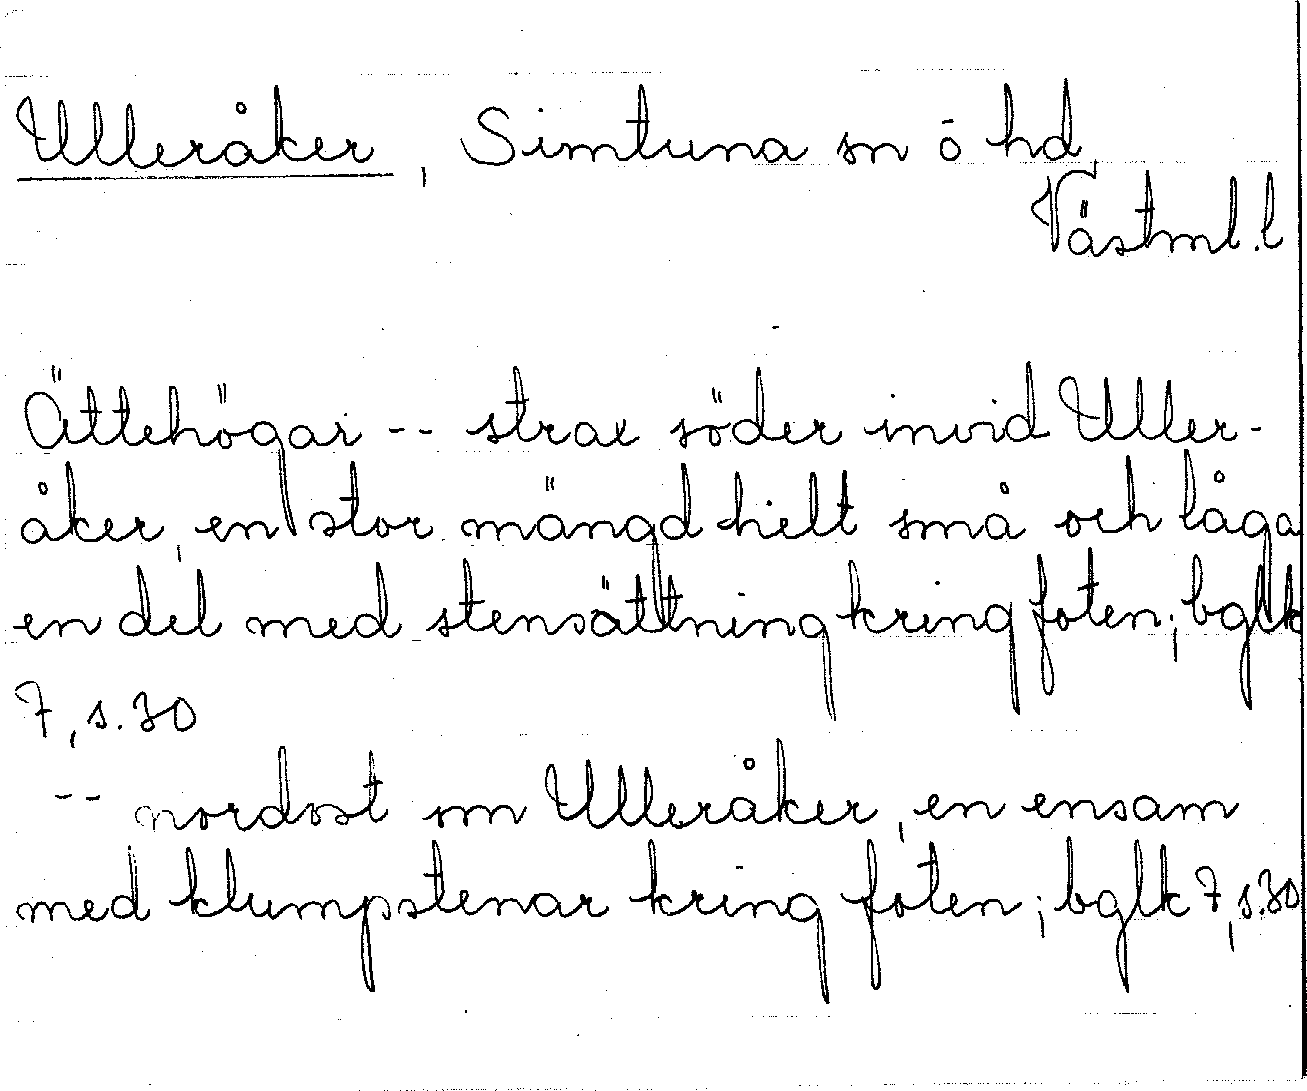 Ulleråker, Simtuna sn ö hd,
Västml.l
Ättehögar -- strax söder invid Uller-
åker, en stor mängd helt små och låga
en del med stensättning kring foten; bglk
7, s.30
-- nordost om Ulleråker, en ensam
med klumpstenar kring foten; bglk 7, s.30